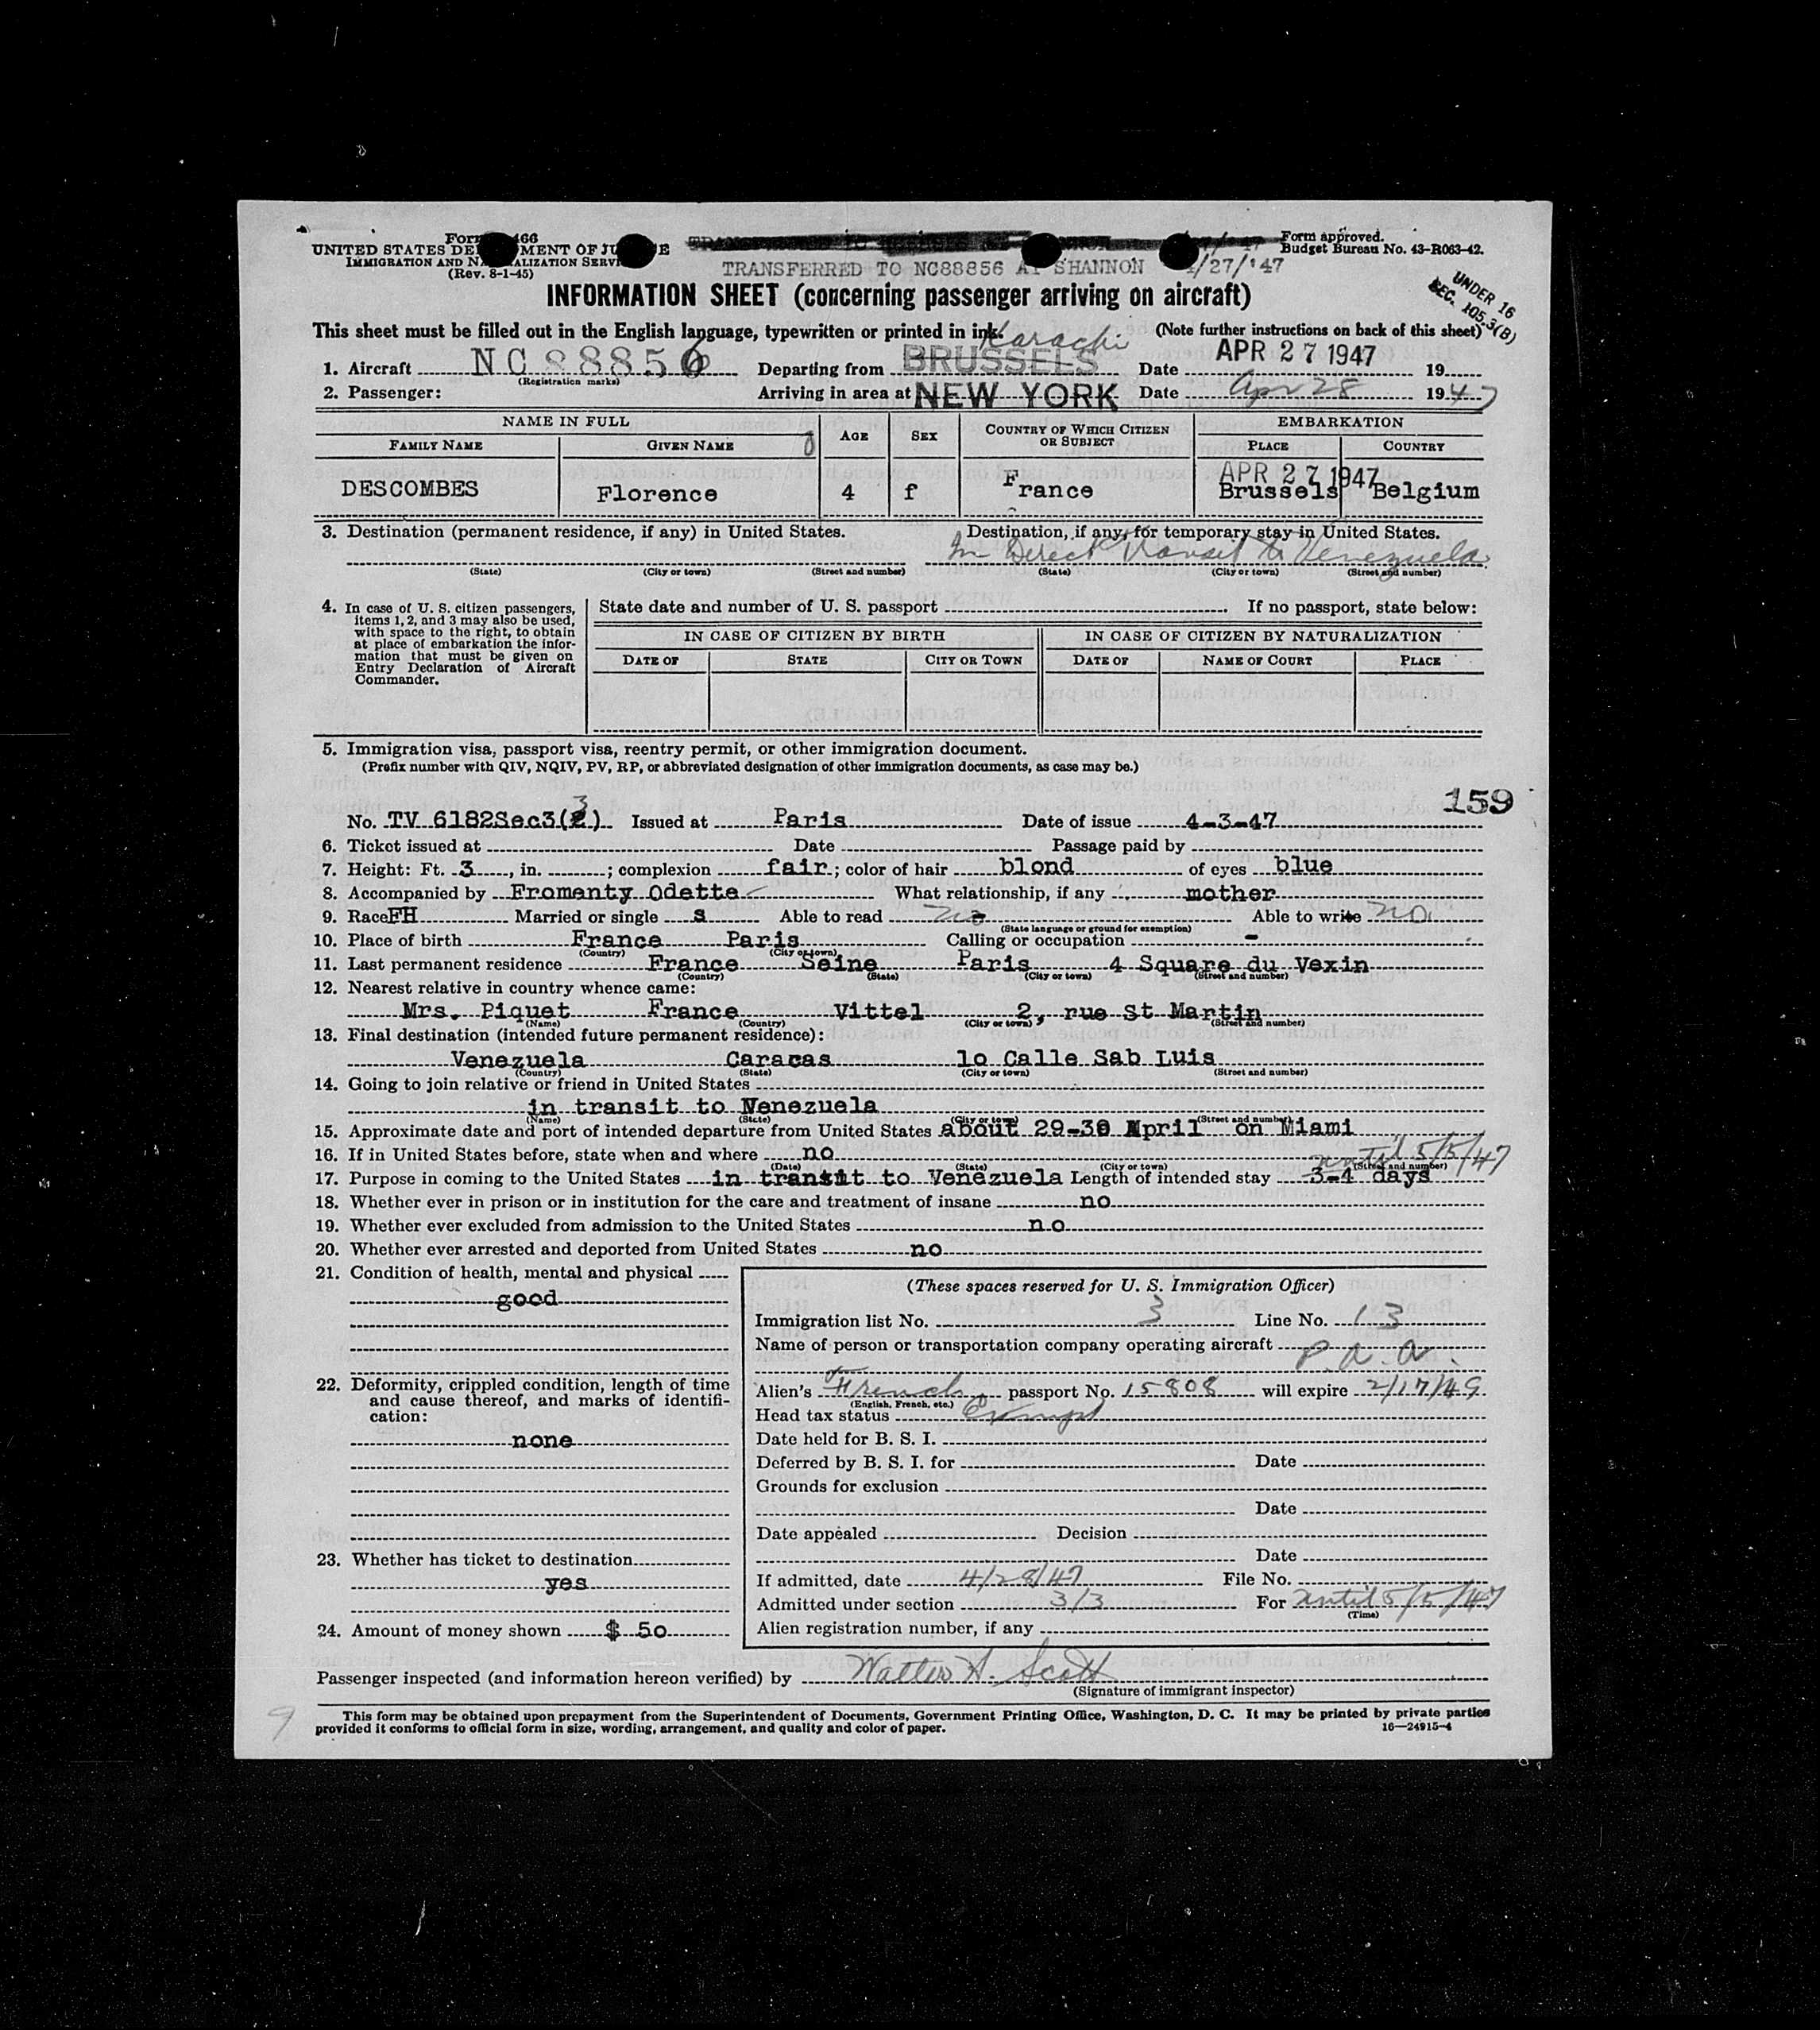 Form 466
UNITED STATES DE MENT OF JU E
IMMIGRATION AND N ALIZATION SERVI
(Rev. 8-1-45)
TRANSFERRED TO NC88856 AT SHANNON 4/27/'47
Form approved.
Budget Bureau No. 43-R063-42.
UNDER 16
SEC. 105.3(B)
INFORMATION SHEET (concerning passenger arriving on aircraft)
This sheet must be filled out in the English language, typewritten or printed in ink. (Note further instructions on back of this sheet)
Karachi
1. Aircraft NC88856 Departing from BRUSSELS Date APR 27 1947 19
(Registration marks)
2. Passenger: Arriving in area at NEW YORK Date Apr 28 1947
NAME IN FULL AGE SEX COUNTRY OF WHICH CITIZEN OR SUBJECT EMBARKATION
FAMILY NAME GIVEN NAME PLACE COUNTRY
APR 27 1947
DESCOMBES Florence 4 f France Brussels Belgium
3. Destination (permanent residence, if any) in United States. Destination, if any, for temporary stay in United States.
In Direct transit to Venezuela
(State) (City or town) (Street and number) (State) (City or town) (Street and number)
4. In case of U. S. citizen passengers, items 1, 2, and 3 may also be used, with space to the right, to obtain at place of embarkation the information that must be given on Entry Declaration of Aircraft Commander.
State date and number of U. S. passport If no passport, state below:
IN CASE OF CITIZEN BY BIRTH IN CASE OF CITIZEN BY NATURALIZATION
DATE OF STATE CITY OR TOWN DATE OF NAME OF COURT PLACE
5. Immigration visa, passport visa, reentry permit, or other immigration document.
(Prefix number with QIV, NQIV, PV, RP, or abbreviated designation of other immigration documents, as case may be.)
159
No. TV 6182Sec3(3) Issued at Paris Date of issue 4-3-47
6. Ticket issued at Date Passage paid by
7. Height: Ft. 3, in. ; complexion fair; color of hair blond of eyes blue
8. Accompanied by Fromenty Odette What relationship, if any mother
9. Race FH Married or single s Able to read no Able to write no
(State language or ground for exemption)
10. Place of birth France Paris Calling or occupation -
(Country) (City or town)
11. Last permanent residence France Seine Paris 4 Square du Vexin
(Country) (State) (City or town) (Street and number)
12. Nearest relative in country whence came:
Mrs. Piquet France Vittel 2, rue St Martin
(Name) (Country) (City or town) (Street and number)
13. Final destination (intended future permanent residence):
Venezuela Caracas 10 Calle Sab Luis
(Country) (State) (City or town) (Street and number)
14. Going to join relative or friend in United States
in transit to Venezuela
(Name) (State) (City or town) (Street and number)
15. Approximate date and port of intended departure from United States about 29-30 April on Miami
16. If in United States before, state when and where no
(Date) (State) (City or town) (Street and number)
until 5/5/47
17. Purpose in coming to the United States in transit to Venezuela Length of intended stay 3-4 days
18. Whether ever in prison or in institution for the care and treatment of insane no
19. Whether ever excluded from admission to the United States no
20. Whether ever arrested and deported from United States no
21. Condition of health, mental and physical
good
22. Deformity, crippled condition, length of time and cause thereof, and marks of identification:
none
23. Whether has ticket to destination
yes
24. Amount of money shown $ 50
(These spaces reserved for U. S. Immigration Officer)
Immigration list No. 3 Line No. 13
Name of person or transportation company operating aircraft P.a.a.
Alien's French passport No. 15808 will expire 2/17/49
(English, French, etc.)
Head tax status Exempt
Date held for B. S. I.
Deferred by B. S. I. for Date
Grounds for exclusion
Date
Date appealed Decision
Date
If admitted, date 4/28/47 File No.
Admitted under section 3/3 For until 5/5/47
(Time)
Alien registration number, if any
Passenger inspected (and information hereon verified) by Walter A. Scott
(Signature of immigrant inspector)
9
This form may be obtained upon prepayment from the Superintendent of Documents, Government Printing Office, Washington, D. C. It may be printed by private parties
provided it conforms to official form in size, wording, arrangement, and quality and color of paper. 16—24915-4